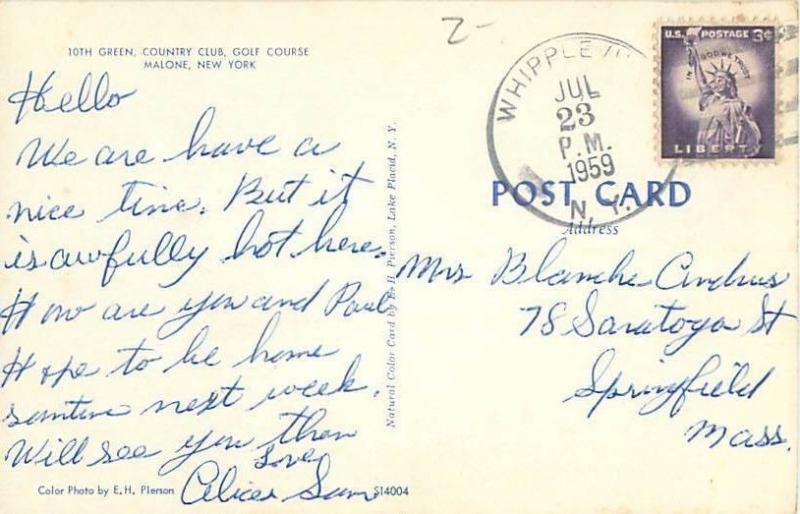 10TH GREEN, COUNTRY CLUB, GOLF COURSE
MALONE, NEW YORK
Hello
We are have a
nice time. But it
is awfully hot here.
How are you and Paul
Hope to be home
somtime next week.
Will see you then
Love
Alice Sam
Color Photo by E. H. Pierson
S14004
Natural Color Card by E. H. Pierson, Lake Placid, N. Y.
2-
WHIPPLE
JUL
23
P.M.
1959
N. Y.
U.S. POSTAGE 3¢
IN GOD WE TRUST
LIBERTY
POST CARD
Address
Mrs Blanche Andrus
78 Saratoga St
Springfield
Mass.